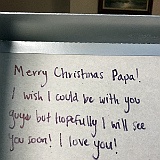 Merry Christmas Papa!
I wish I could be with you
guys but hopefully I will see
you soon! I love you!